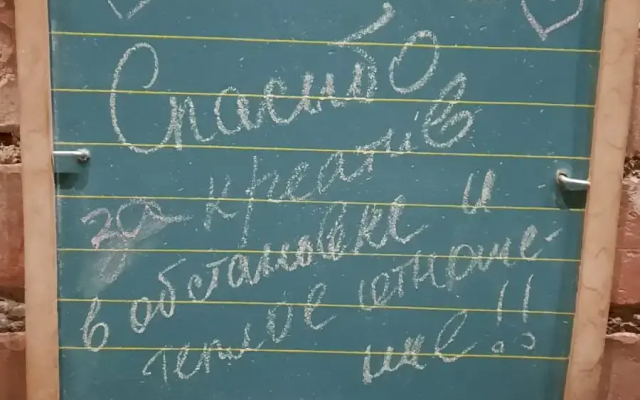 Спасибо
за креатив
в обстановке и
теплое отноше-
ние!!